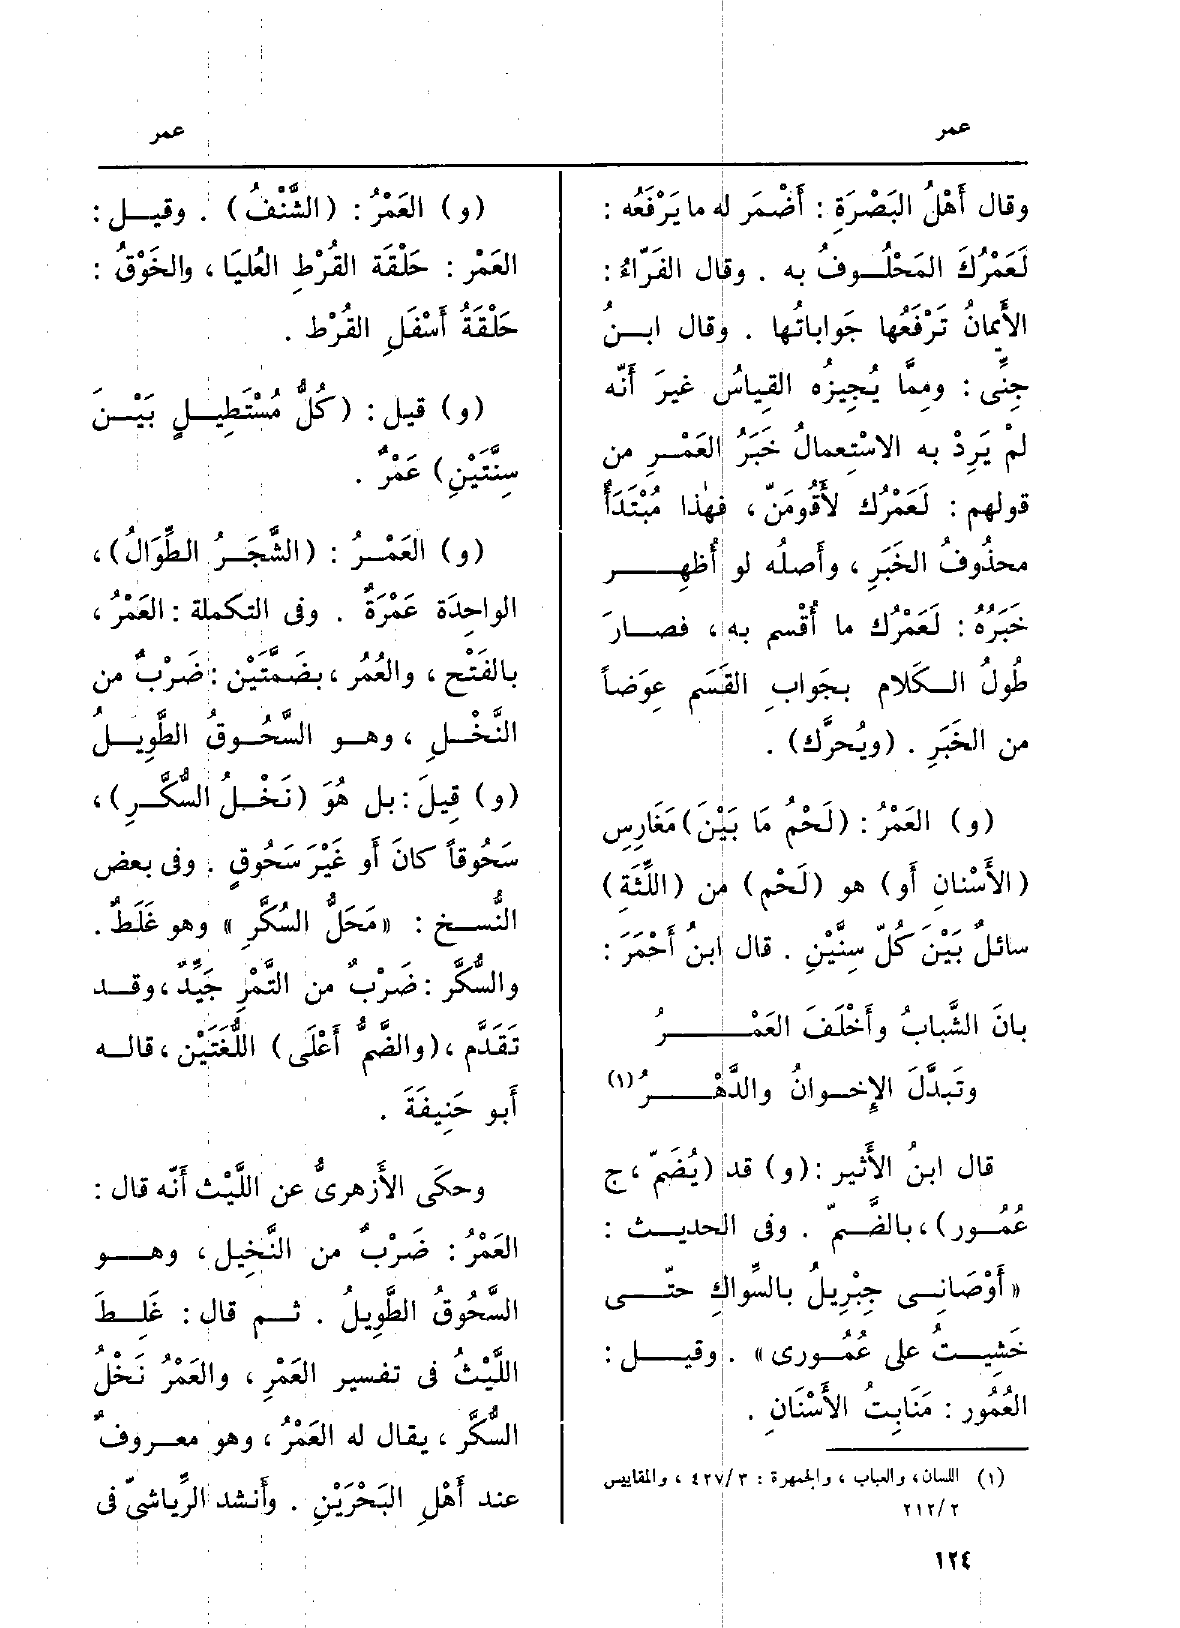 عمر
عمر
وقال أَهْلُ البَصْرَةِ : أَضْمَر له ما يَرْفَعُه :
لَعَمْرُكَ المَحْلُوفُ به . وقال الفَرّاءُ :
الأَيمانُ تَرْفَعُها جَواباتُها . وقال ابنُ
جِنِّى : ومِمّا يُجِيزُه القِياسُ غيرَ أَنّه
لمْ يَرِدْ به الاسْتِعمالُ خَبَرُ العَمْرِ من
قولهم : لَعَمْرُك لأَقُومَنّ ، فهٰذا مُبْتَدَأٌ
محذُوفُ الخَبَرِ ، وأَصلُه لو أُظهِر
خَبَرُه : لَعَمْرُك ما أُقْسِم به ، فصارَ
طُولُ الكَلام بجَوابِ القَسَمِ عِوَضاً
من الخَبَرِ . (ويُحرَّك) .
(و) العَمْرُ : (لَحْمُ مَا بَيْنَ) مَغَارِسِ
(الأَسْنانِ أَو) هو (لَحْم) من (اللِّثَةِ)
سائلٌ بَيْنَ كُلّ سِنَّيْنِ . قال ابنُ أَحْمَرَ :
بانَ الشَّبابُ وأَخْلَفَ العَمْرُ
وتَبدَّلَ الإِخوانُ والدَّهْرُ (١)
قال ابنُ الأَثير : (و) قد (يُضَمّ ، ج
عُمُور) ، بالضَّمّ . وفى الحديث :
«أَوْصَانِى جِبْرِيلُ بالسِّواكِ حتّى
خَشِيتُ على عُمُورى» . وقيل :
العُمُور : مَنَابِتُ الأَسْنَانِ .
(١) اللسان ، والعباب ، والجمهرة : ٤٢٧/٣ ، والمقاييس
٢١٢/٢
(و) العَمْرُ : (الشَّنْفُ) . وقيل :
العَمْر : حَلْقَة القُرْطِ العُليَا ، والخَوْقُ :
حَلْقَةُ أَسْفَلِ القُرْط .
(و) قيل : (كُلُّ مُسْتَطِيلٍ بَيْنَ
سِنَّتَيْنِ) عَمْرٌ .
(و) العَمْرُ : (الشَّجَرُ الطِّوَالُ) ،
الواحِدَة عَمْرَةٌ . وفى التكملة : العَمْرُ ،
بالفَتْح ، والعُمُر ، بضَمَّتَيْن : ضَرْبٌ من
النَّخْلِ ، وهو السَّحُوقُ الطَّوِيلُ
(و) قِيلَ : بل هُوَ (نَخْلُ السُّكَّرِ) ،
سَحُوقاً كانَ أَو غَيْرَ سَحُوقٍ . وفى بعض
النُّسخ : «مَحَلُّ السُكَّرِ» وهو غَلَطٌ .
والسُّكَّر : ضَرْبٌ من التَّمْرِ جَيِّدٌ ، وقد
تَقَدَّم ، (والضَّمُّ أَعْلَى) اللُّغَتَيْن ، قاله
أَبو حَنِيفَةَ .
وحكَى الأَزهرىُّ عن اللَّيْث أَنّه قال :
العَمْرُ : ضَرْبٌ من النَّخِيل ، وهو
السَّحُوقُ الطَّوِيلُ . ثم قال : غَلِطَ
اللَّيْثُ فى تفسير العَمْرِ ، والعَمْرُ نَخْلُ
السُّكَّر ، يقال له العَمْرُ ، وهو معروفٌ
عند أَهْلِ البَحْرَيْنِ . وأَنشد الرِّياشىّ فى
١٢٤